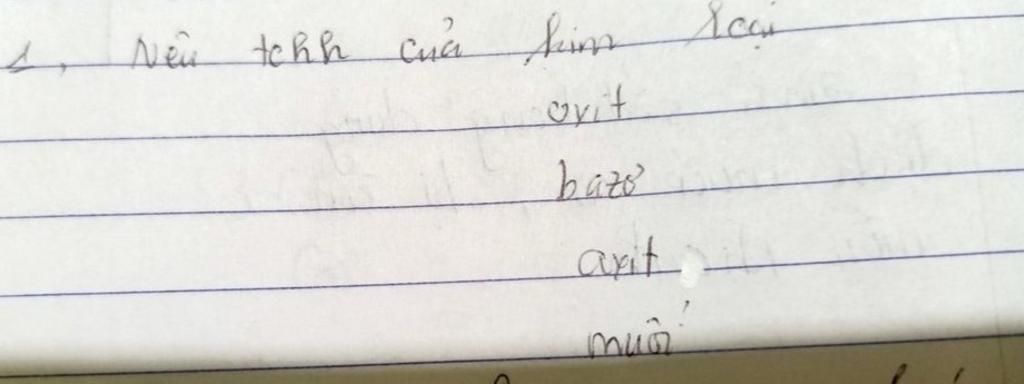 1, Nêu tchh của kim loại
oxit
bazơ
axit
muối